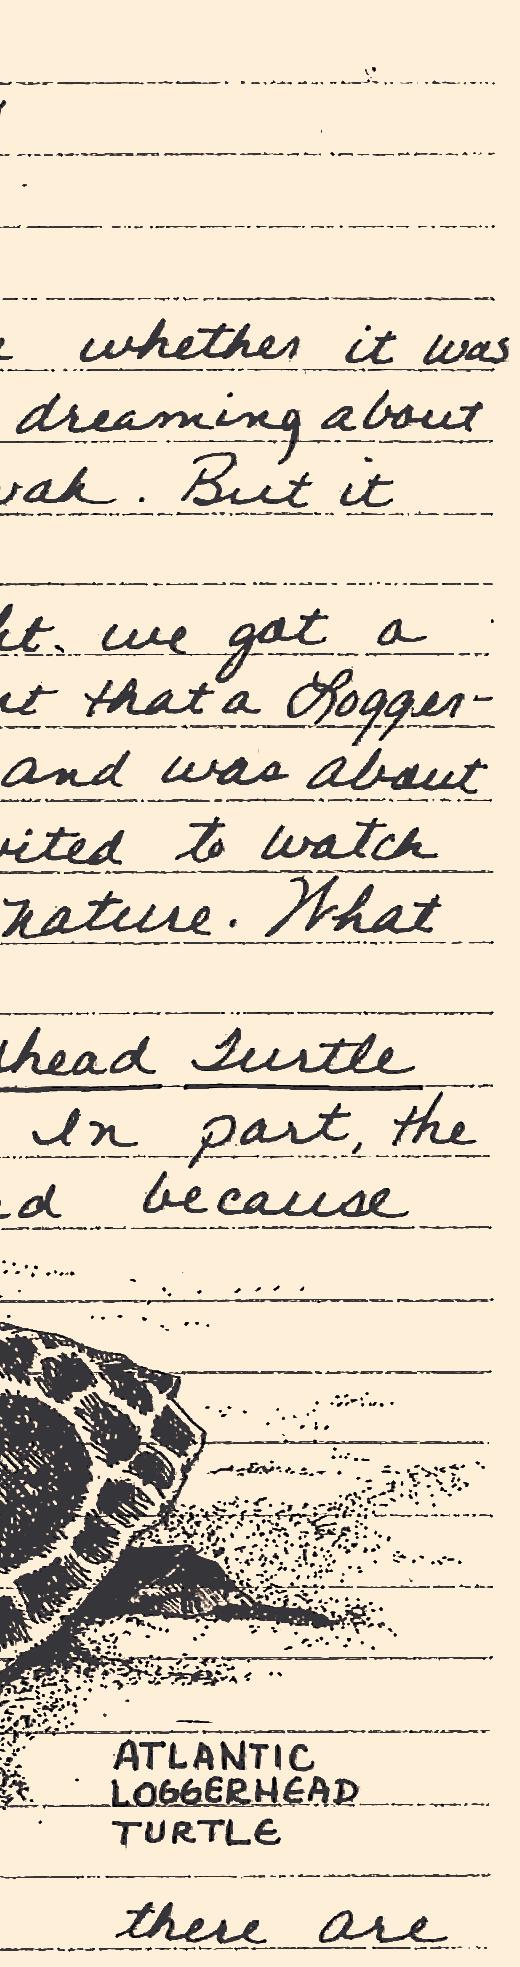 whether it was
dreaming about
. But it
we got a
that a Logger-
and was about
to watch
nature. What
head Turtle
In part, the
because
ATLANTIC
LOGGERHEAD
TURTLE
there are